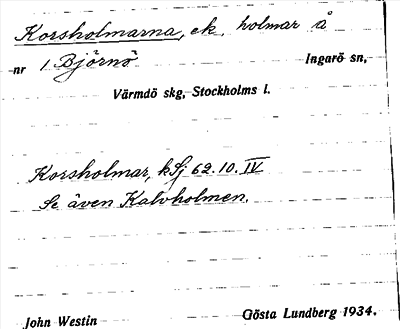 Korsholmarna, ek. holmar å
nr 1 Björnö Ingarö sn,
Värmdö skg, Stockholms l.
Korsholmar, kSj 62.10.IV
Se även Kalvholmen.
John Westin Gösta Lundberg 1934.